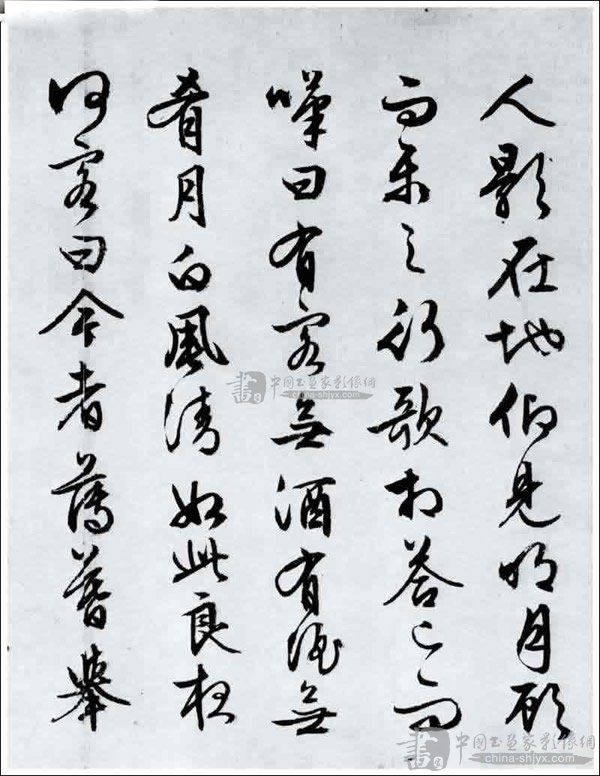 人影在地仰見明月顧
而樂之行歌相答已而
嘆曰有客無酒有酒無
肴月白風清如此良夜
何客曰今者薄暮舉
書 中国书画家影像網
china-shjyx.com
書 中国书画家影像網
china-shjyx.com